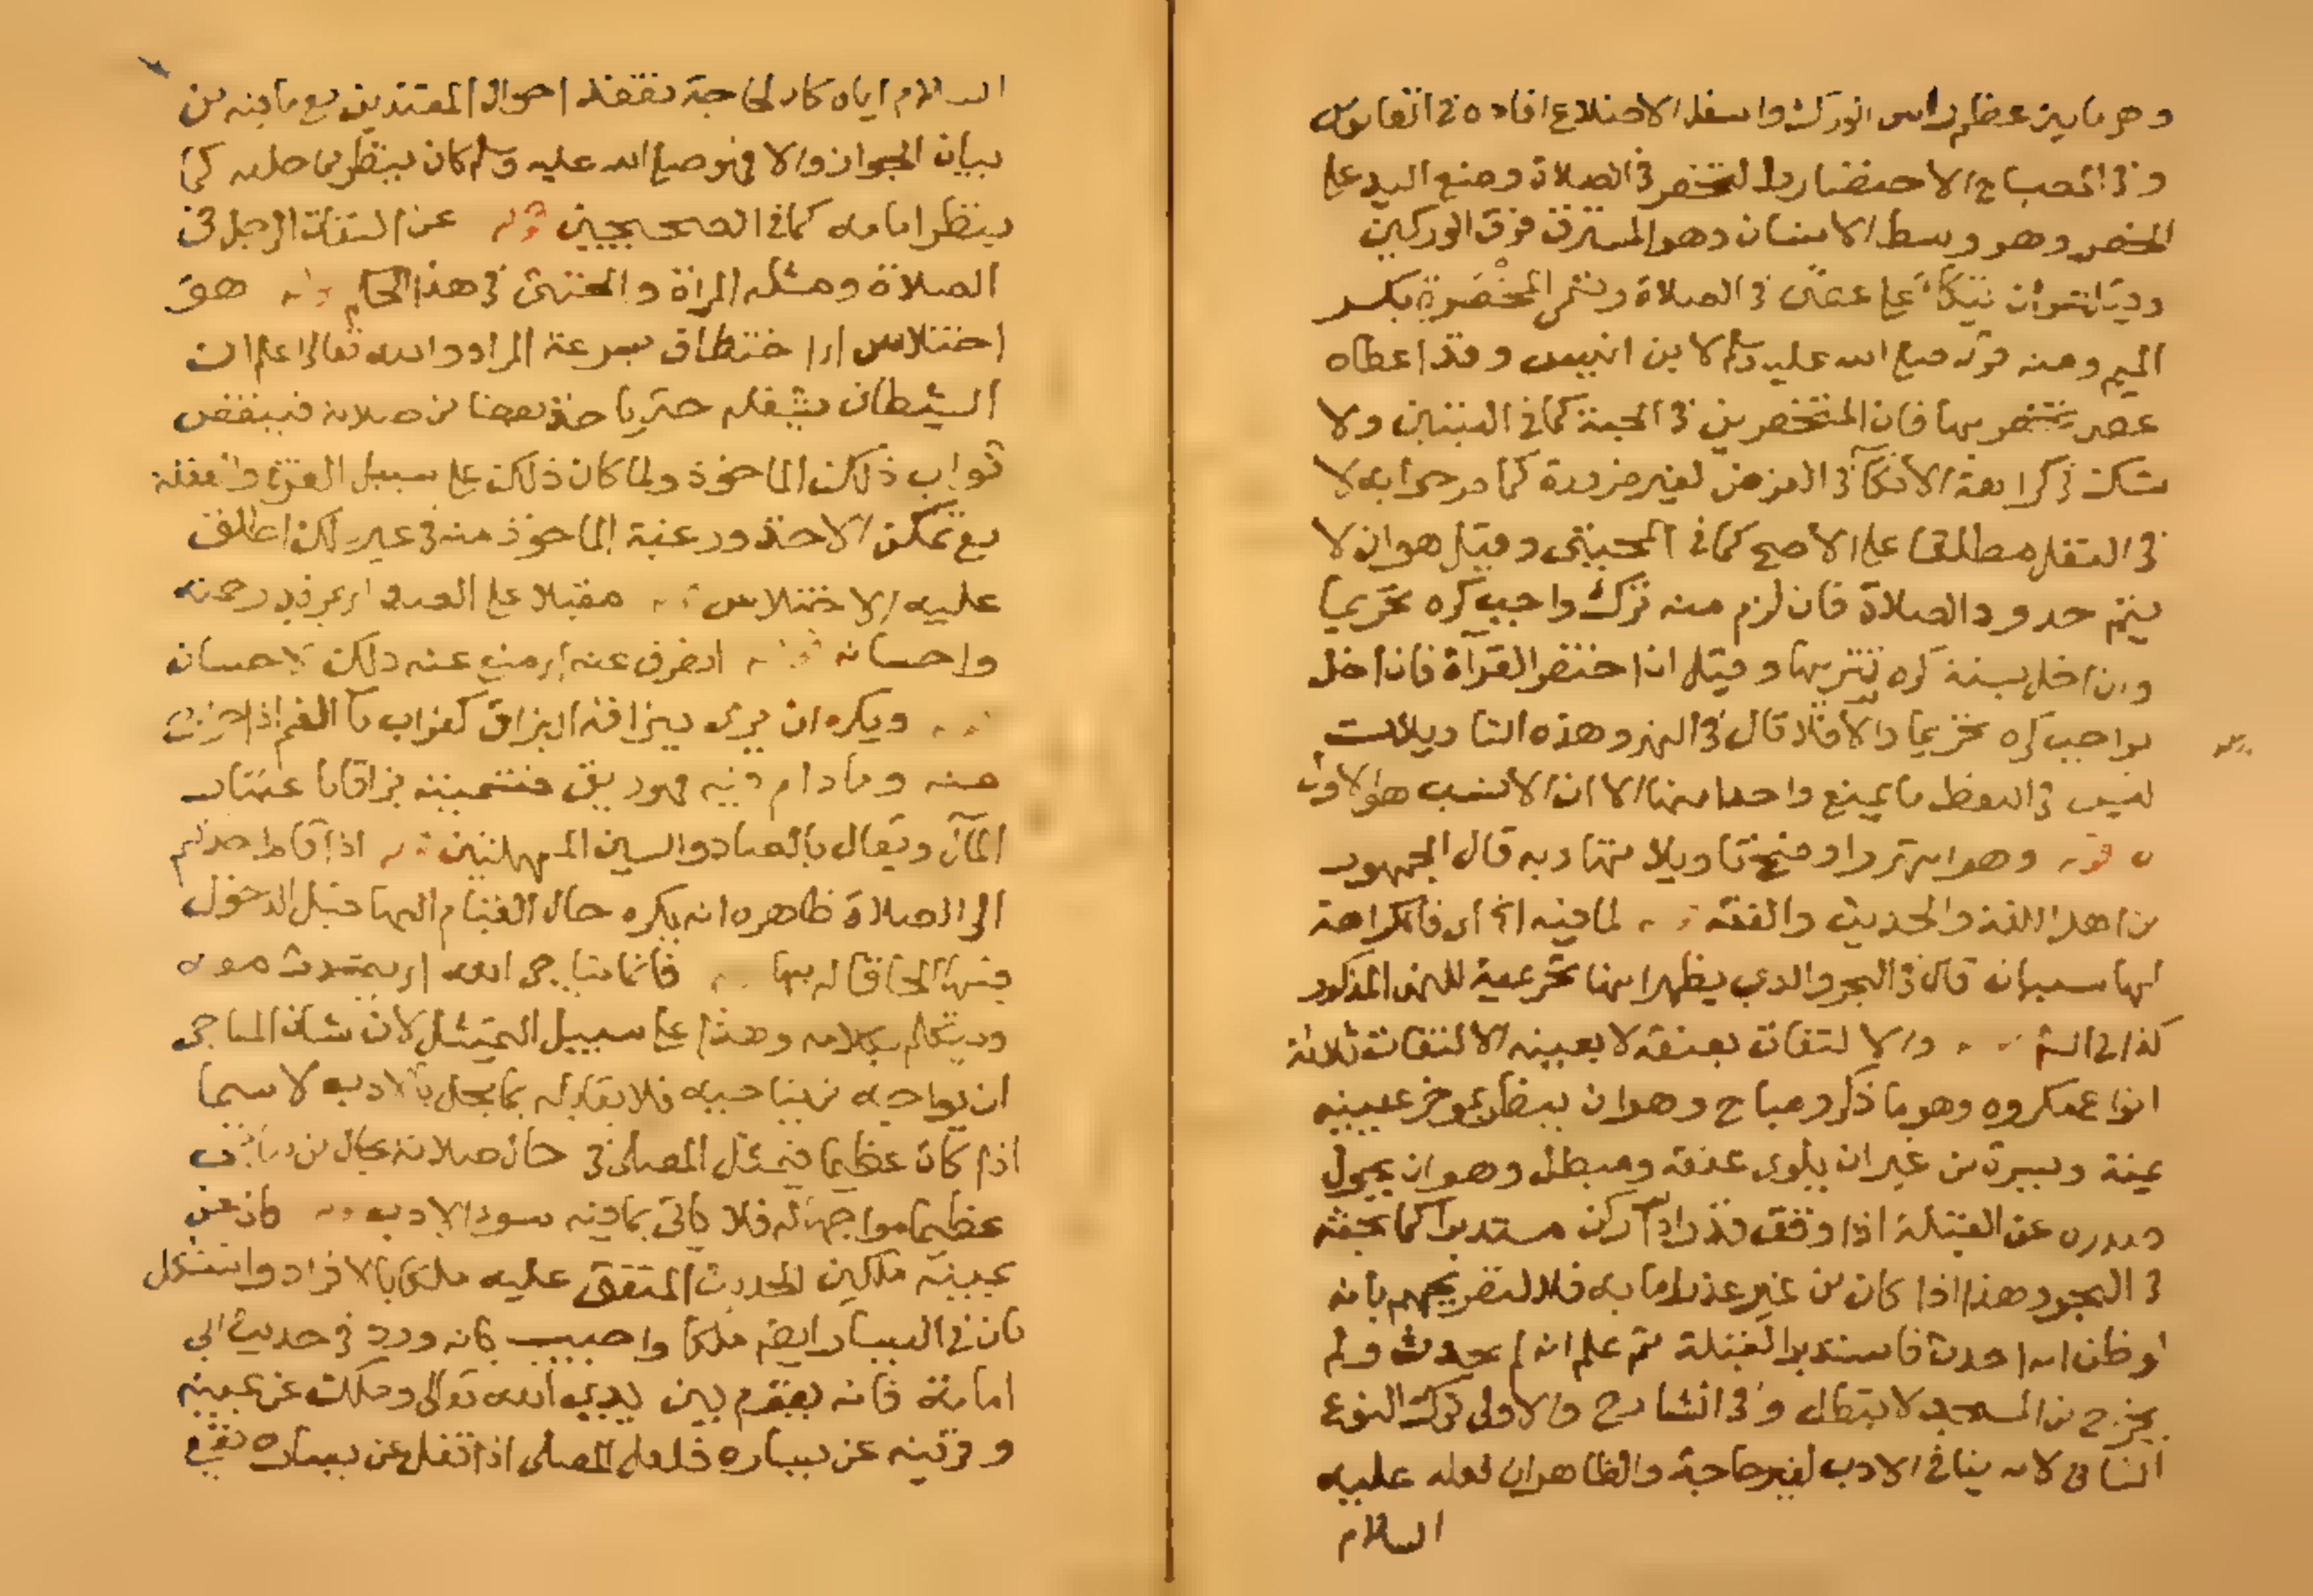 وهو ما بين عظم راس الورك واسفل الاضلاع افاده في القاموس
وفي المصباح الاختصار والتخصر في الصلاة وضع اليد على
الخصر وهو وسط الانسان وهو المستدق فوق الوركين
ان يتكأ على عصى في الصلاة وتسمى المخصرة بكسر
الميم ومنه قوله صلى الله عليه وسلم لابن انيس وقد اعطاه
عصى تخصر بها فان المتخصرين في الجنة كما في ولا
شك في كراهة الاتكآ في الفرض لغير ضرورة كما صرحوا به لا
في النفل مطلقا على الاصح كما في المجتبى وقيل هو ان لا
يتم حدود الصلاة فان لزم منه ترك واجب كره تحريما
وان اخل بسنة كره تنزيها وقيل ان اختصر القرآة فان اخل
بواجب كره تحريما والا فلا قال في النهر وهذه التاويلات
ليس في اللفظ ما يمنع واحدا منها الا ان الانسب هو الاول
قوله وهو اشهر واوضح تاويلاتها وبه قال الجمهور
من اهل اللغة والحديث والفقه لما فيه اي فالكراهة
لها سببان قال في البحر والذي يظهر انها تحريمية للنهي المذكور
كذا في الشر والالتفات بعنقه لا بعينه الالتفات ثلاثة
انواع مكروه وهو ما ذكر ومباح وهو ان ينظر بموخر عينيه
يمنة ويسرة من غير ان يلوى عنقه ومبطل وهو ان يحول
صدره عن القبلة اذا وقف قدر ادآ ركن مستدبرا كما بحثه
في البحر وهذا اذا كان من غير عذر اما به فلا لتصريحهم بانه
لو ظن انه احدث فاستدبر القبلة ثم علم انه لم يحدث ولم
يخرج من المسجد لا تبطل وفي الشارح والاولى ترك النوع
الثاني لانه ينافي الادب لغير حاجة والظاهر ان فعله عليه
السلام
السلام اياه كان لحاجة تفقد احوال المقتدين مع ما فيه من
بيان الجواز والا فهو صلى الله عليه وسلم كان ينظر من خلفه كما
ينظر امامه كما في الصحيحين قوله عن التفات الرجل في
الصلاة ومثله المرأة والخنثى في هذا الحكم قوله هو
اختلاس اي اختطاف بسرعة المراد والله تعالى اعلم ان
الشيطان يشغله حتى ياخذ بعضا من صلاته فينقص
ثواب ذلك الماخوذ ولما كان ذلك على سبيل الغرة والغفلة
مع تمكن الاخذ ورغبة الماخوذ منه في غير ذلك اطلق
عليه الاختلاس قوله مقبلا على العبد اي برحمته
واحسانه قوله انصرف عنه اي منع عنه ذلك الاحسان
قوله ويكره ان يرمى ببزاقه البزاق كغراب مآ الفم اذا خرج
منه وما دام فيه فهو ريق فتسميته بزاقا باعتبار
المآل ويقال بالصاد والسين المهملتين قوله اذا قام احدكم
الى الصلاة ظاهره انه يكره حال القيام اليها قبل الدخول
فيها الحاقا له بها قوله فانما يناجى الله اي
ويتكلم بكلامه وهذا على سبيل التمثيل لان شان المناجى
ان يواجه من يناجيه فلا يقابله بما يخل بالادب لا سيما
اذا كان عظيما فيمثل المصلى في حال صلاته بحال من
عظيما مواجها له فلا ياتى بما فيه سوء الادب قوله فان عن
يمينه ملكين لحديث المتفق عليه ملكا بالافراد واستشكل
بان في اليسار ايضا ملكا واجيب بانه ورد في حديث ابي
امامة فانه يقوم بين يدي الله تعالى وملك عن يمينه
وقرينه عن يساره فلعل المصلى اذا تفل عن يساره يقع